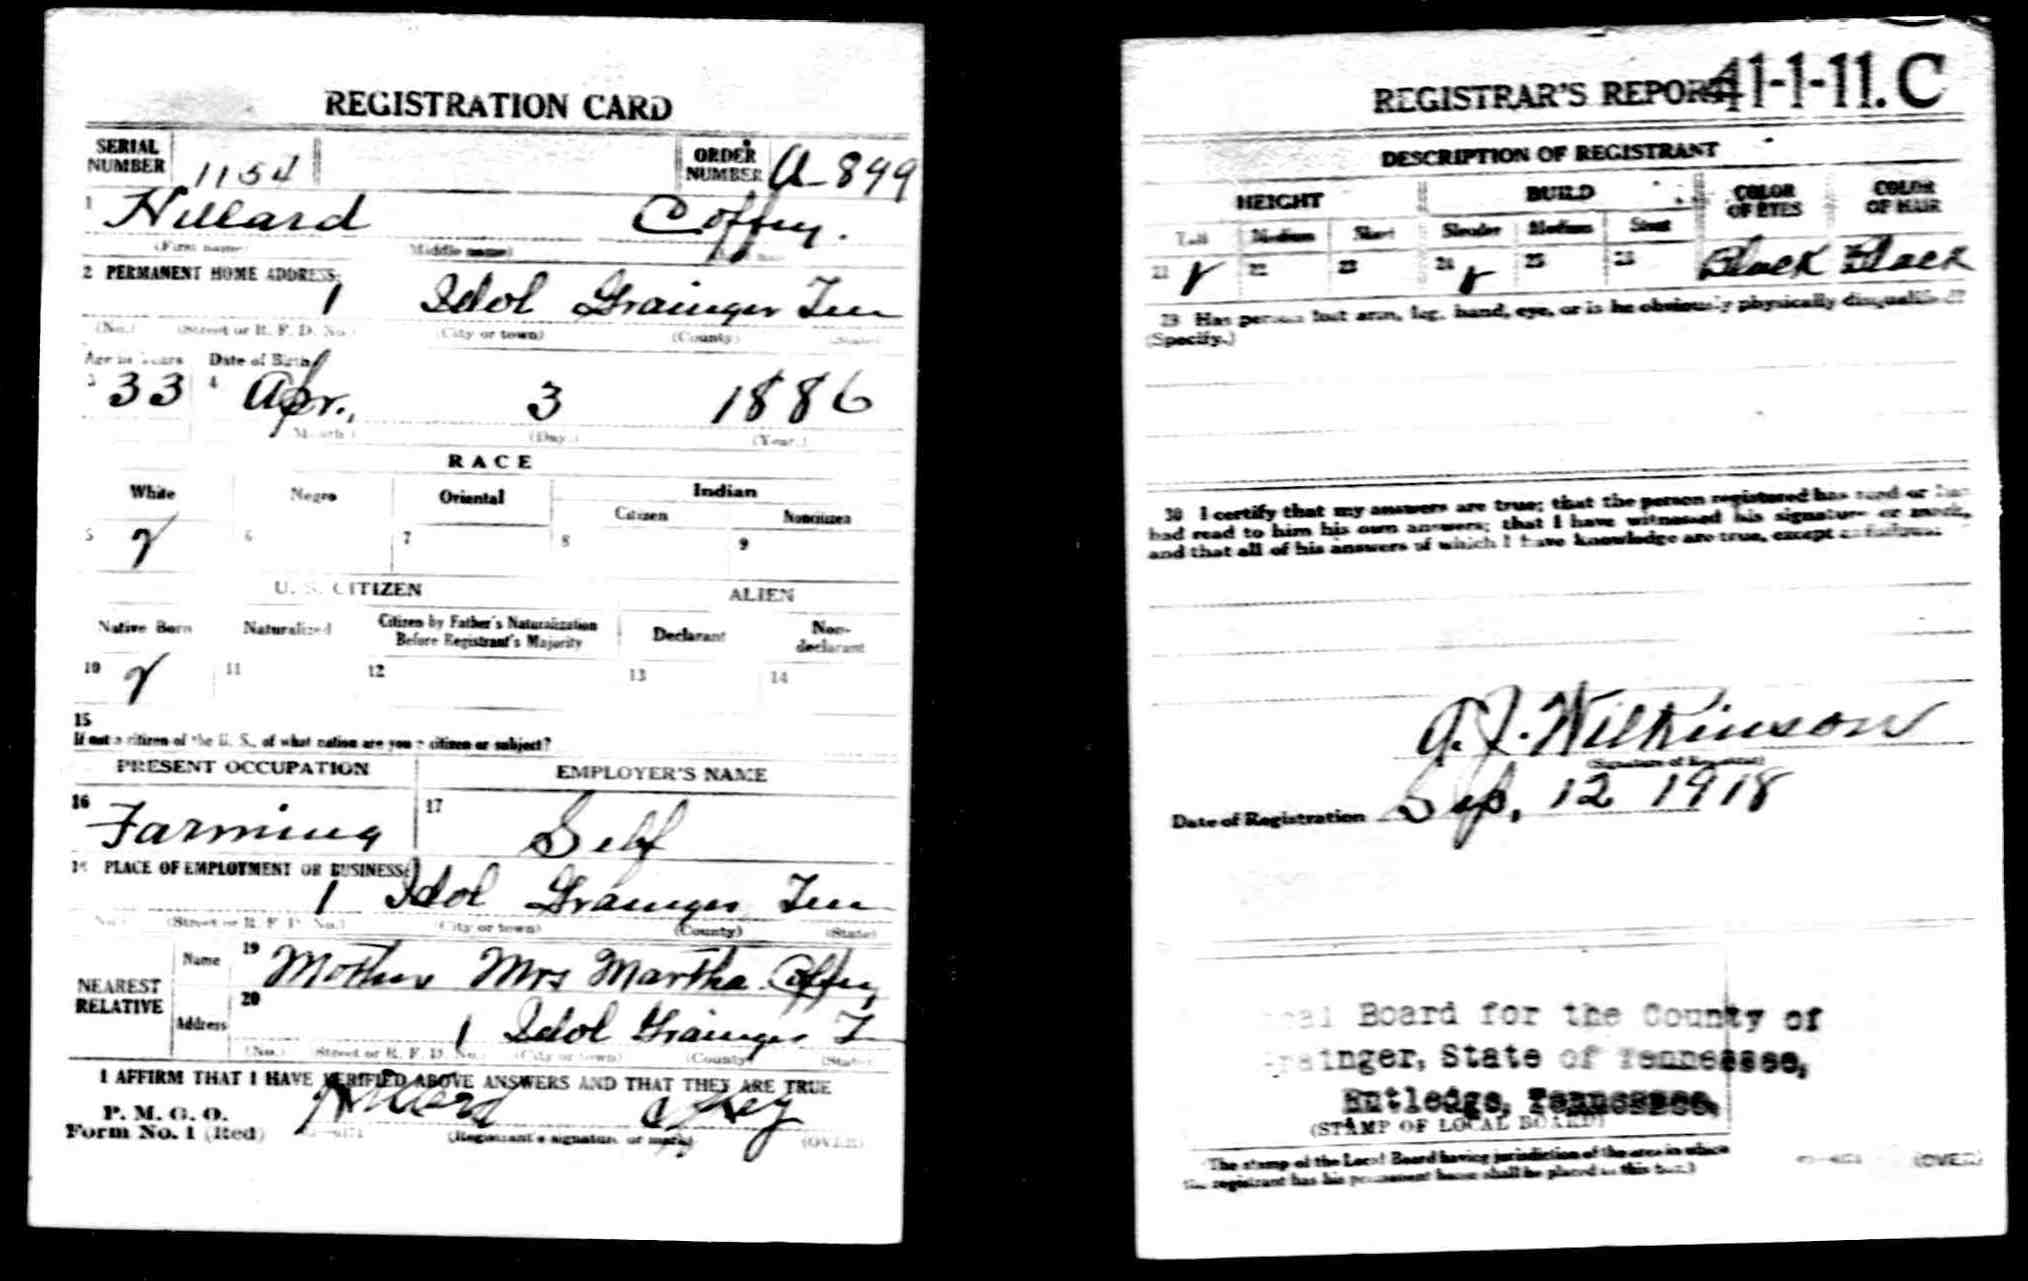 REGISTRATION CARD
SERIAL NUMBER 1154 ORDER NUMBER A-899
1 Hillard Coffey.
(First name) (Middle name)
2 PERMANENT HOME ADDRESS:
1 Idol Grainger Ten
(No.) (Street or R. F. D. No.) (City or town) (County) (State)
Age in Years Date of Birth
3 33 4 Apr. 3 1886
(Month.) (Day.) (Year.)
RACE
White Negro Oriental Indian
Citizen Noncitizen
5 6 7 8 9
U. S. CITIZEN ALIEN
Native Born Naturalized Citizen by Father's Naturalization Before Registrant's Majority Declarant Non-declarant
10 11 12 13 14
15
If not a citizen of the U. S., of what nation are you a citizen or subject?
PRESENT OCCUPATION EMPLOYER'S NAME
16 Farming 17 Self
18 PLACE OF EMPLOYMENT OR BUSINESS:
1 Idol Grainger Ten
(No.) (Street or R. F. D. No.) (City or town) (County) (State)
NEAREST RELATIVE
Name 19 Mother Mrs Martha Coffey
Address 20 1 Idol Grainger T
(No.) (Street or R. F. D. No.) (City or town) (County) (State)
I AFFIRM THAT I HAVE VERIFIED ABOVE ANSWERS AND THAT THEY ARE TRUE
P. M. G. O.
Form No. 1 (Red) Hillard
(Registrant's signature or mark) (OVER)
REGISTRAR'S REPORT 41-1-11. C
DESCRIPTION OF REGISTRANT
HEIGHT BUILD COLOR OF EYES COLOR OF HAIR
Tall Medium Short Slender Medium Stout
21 22 23 24 25 26 Black Black
29 Has person lost arm, leg, hand, eye, or is he obviously physically disqualified?
(Specify.)
30 I certify that my answers are true; that the person registered has read or has
had read to him his own answers; that I have witnessed his signature or mark,
and that all of his answers of which I have knowledge are true, except as follows:
A. J. Wilkinson
(Signature of Registrar)
Date of Registration Sep, 12 1918
Local Board for the County of
Grainger, State of Tennessee,
Rutledge, Tennessee.
(STAMP OF LOCAL BOARD)
(The stamp of the Local Board having jurisdiction of the area in which
the registrant has his permanent home shall be placed in this box.)
(OVER)